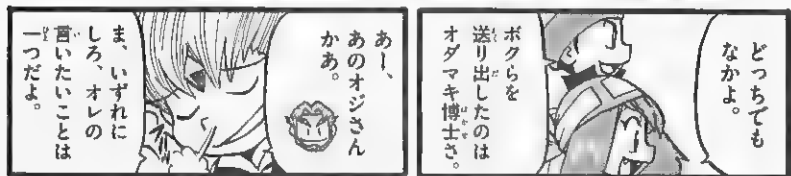 どっちでも
なかよ。
ボクらを
送り出したのは
オダマキ博士さ。
あー、
あのオジさん
かあ。
ま、いずれに
しろ、オレの
言いたいことは
一つだよ。